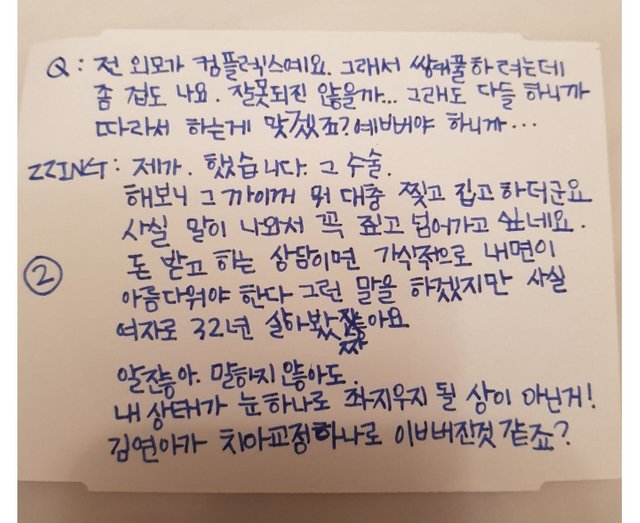 Q : 전 외모가 컴플렉스예요. 그래서 쌍커풀하려는데
좀 겁도 나요. 잘못되진 않을까... 그래도 다들 하니까
따라서 하는게 맞겠죠? 예뻐야 하니까...
ZZINGT : 제가. 했습니다. 그 수술.
해보니 그까이꺼 뭐 대충 찢고 집고 하더군요
사실 말이 나와서 꼭 짚고 넘어가고 싶네요.
② 돈 받고 하는 상담이면 가식적으로 내면이
아름다워야 한다 그런 말을 하겠지만 사실
여자로 32년 살아봤잖아요
알잖아. 말하지 않아도.
내 상태가 눈 하나로 좌지우지 될 상이 아닌거!
김연아가 치아교정 하나로 이뻐진것 같죠?